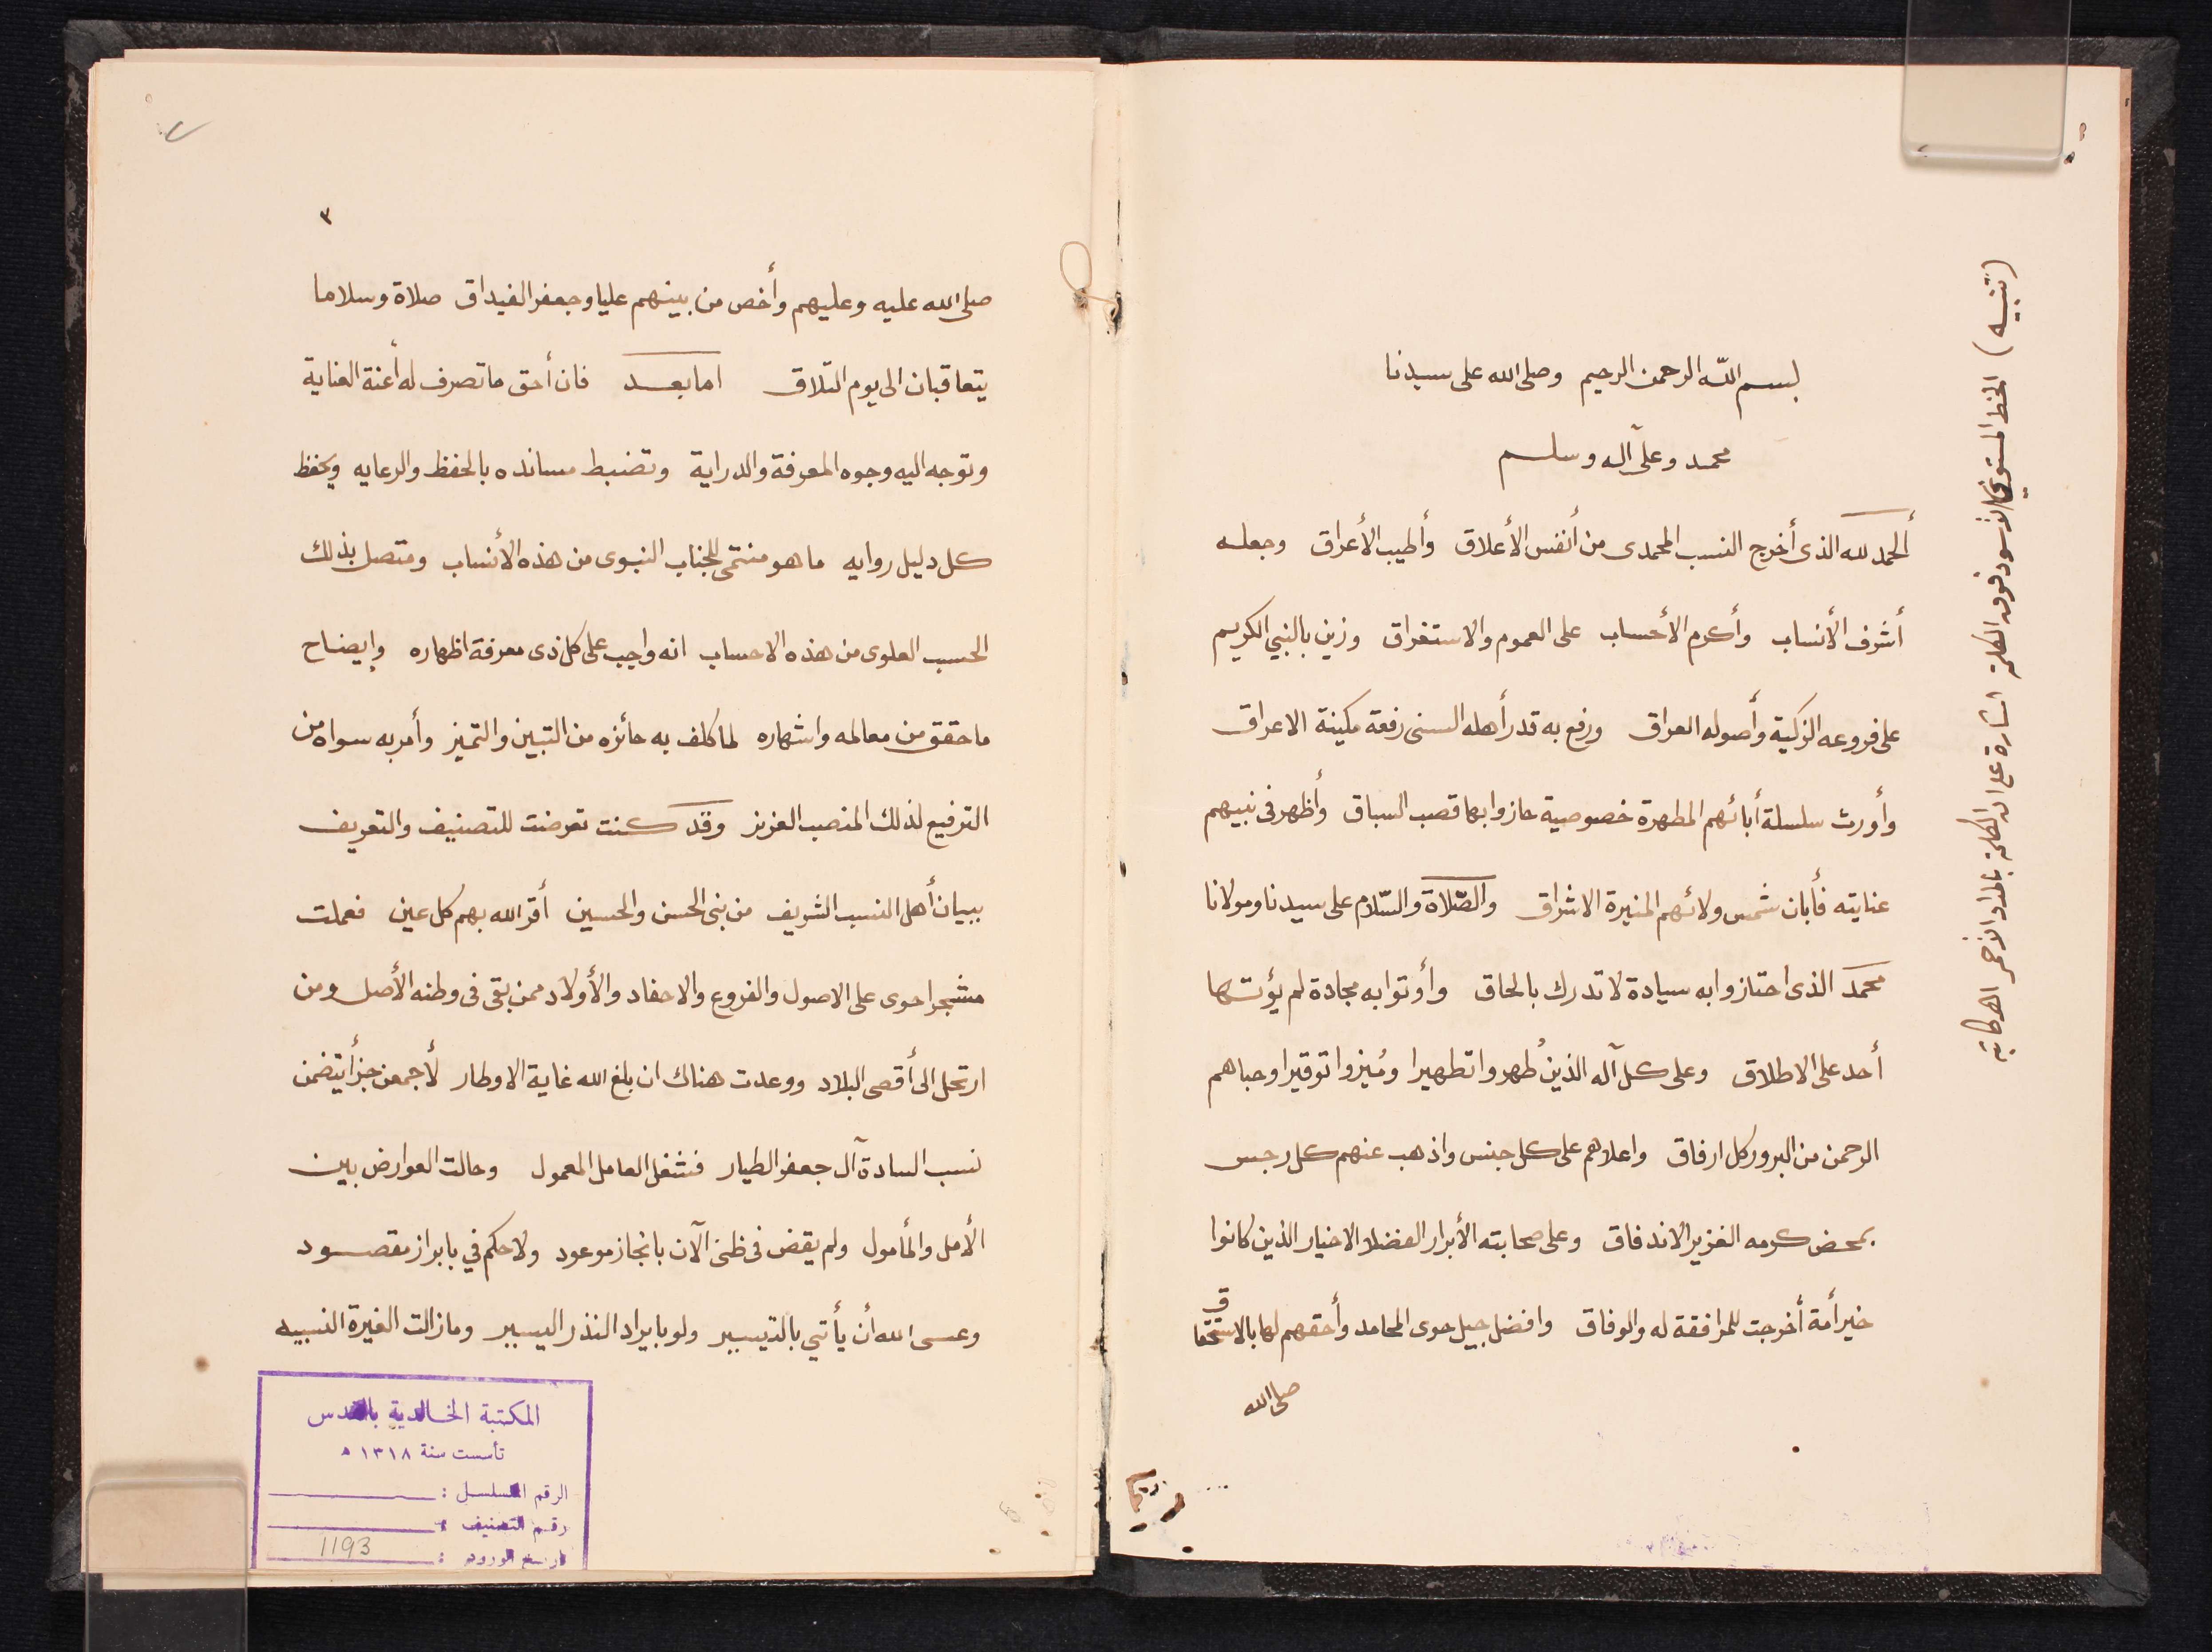 بسم الله الرحمن الرحيم وصلى الله على سيدنا
محمد وعلى آله وسلم
ألحمد لله الذى أخرج النسب المحمدى من أنفس الأعلاق وأطيب الأعراق وجعله
أشرف الأنساب وأكرم الأحساب على العموم والاستغراق وزين بالنبي الكريم
على فروعه الزكية وأصوله العراق ورفع به قدر أهله السنى رفعة مكينة الاعراق
وأورث سلسلة أبائهم المطهرة خصوصية حازوا بها قصب السباق وأظهر فى نبيهم
عنايته فأبان شمس ولائهم المنيرة الاشراق والصّلاة والسّلام على سيدنا ومولانا
محمد الذى احتازوا به سيادة لا تدرك بالحاق وأوتوا به مجادة لم يؤتها
أحد على الاطلاق وعلى كل آله الذين طُهروا تطهيرا ومُيزوا توقيرا وحباهم
الرحمن من البرور كل ارفاق واعلاهم على كل جنس واذهب عنهم كل رجس
بمحض كرمه الغزير الاندفاق وعلى صحابته الأبرار الفضلا الاخيار الذين كانوا
خير أمة أخرجت للمرافقة له والوفاق وافضل جيل حوى المحامد وأحقهم لها بالاستحقاق
صلى الله
(تنبيه) الخط المستوي الأسود فوق الكلمة اشارة على ان الكلمة بالمداد الأحمر اهـ كاتبه
٣
صلى الله عليه وعليهم وأخص من بينهم عليا وجعفر الغيداق صلاة وسلاما
يتعاقبان الى يوم التلاق اما بعد فان أحق ما تصرف له أعنة العناية
وتوجه اليه وجوه المعرفة والدراية وتضبط مسانده بالحفظ والرعايه ويحفظ
كل دليل روايه ما هو منتمى للجناب النبوى من هذه الأنساب ومتصل بذلك
الحسب العلوى من هذه الاحساب انه واجب على كل ذى معرفة اظهاره وايضاح
ما حقق من معالمه واشهاره لما كلف به حائزه من التبين والتميز وأمر به سواه من
الترفيع لذلك المنصب العزيز وقد كنت تعرضت للتصنيف والتعريف
ببيان أهل النسب الشريف من بنى الحسن والحسين أقر الله بهم كل عين فعملت
مشجرا حوى على الاصول والفروع والاحفاد والأولاد ممن بقى فى وطنه الأصل ومن
ارتحل الى أقصى البلاد ووعدت هناك ان بلغ الله غاية الاوطار لأجمعن جزأ يتضمن
نسب السادة آل جعفر الطيار فشغل العامل المعمول وحالت العوارض بين
الأمل والمأمول ولم يقض فى ظنى الآن بانجاز موعود ولا حكم في بابراز مقصود
وعسى الله أن يأتي بالتيسير ولو بايراد النذر اليسير وما زالت الغيرة النسبيه
المكتبة الخالدية بالقدس
تأسست سنة ١٣١٨ ه
الرقم المسلسل :
رقم التصنيف :
تاريخ الورود : 1193